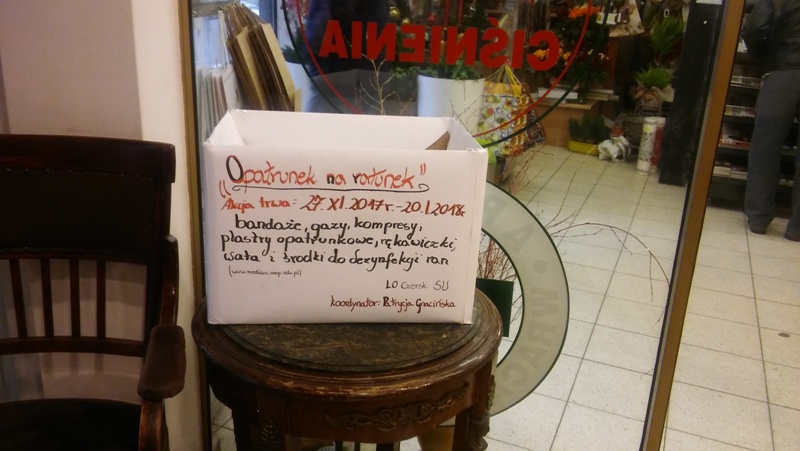 CIŚNIENIA
„Opatrunek na ratunek"
Akcja trwa: 27.XI.2017r. - 20.I.2018r.
bandaże, gazy, kompresy,
plastry opatrunkowe, rękawiczki,
wata i środki do dezynfekcji ran
LO Czersk SU
koordynator: Patrycja Gracińska